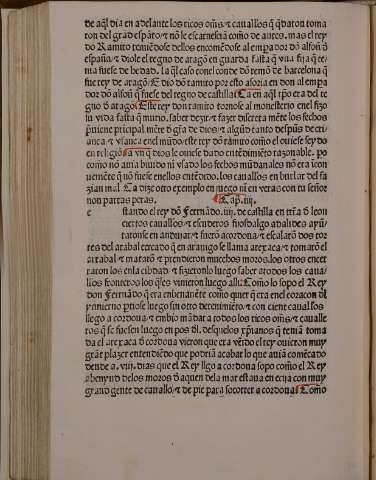 de aq̃l dia en adelante los ricos om̃s ⁊ cauallos q̃ q̃daron toma
ron del grãd espãto ⁊ nõ le escarnesciã como de antes. mas el rey
do Ramiro temiẽdose dellos encomẽdose al empador dõ alfon đ
españa ⁊ diole el regno de aragõ en guarda fasta q̃ vna fija q̃ te
nia fuese de hedad. la q̃l caso con el conde dõ remõ de barcelona q̃
fue rey de aragõ. E dio dõ ramiro por esto a soria en don al empa
dor dõ alfon q̃ fuese del regno de castilla. Ca en aq̃l tpõ era del re
gno đ aragõ. Este rey don ramiro tornose al monesterio en el fizo
su vida fasta q̃ murio. saber dezir ⁊ fazer discreta mẽte los fechos
p̃uiene principal mẽte đ gr̃a de dios ⁊ algund tanto despũs de cri
ança ⁊ vsança en el mũdo. este rey dõ ramiro como el ouiese seydo
en religio ⁊ avn q̃ dios le ouiese dado entẽdimiẽto razonable. po
como nõ auia biuido nĩ vsado los fechos mũdanales nõ era con
ueniẽte q̃ nõ fuese en ellos entẽdido. los caualleros en burlar del fa
zian mal. Ca dize otro exemplo en juego nĩ en veras con tu señor
non partas peras. Cap. iiij.
e stando el rey dõ Fernãdo. iiij. de castilla en trr̃a đ leon
ciertos cauallos ⁊ escuderos fijosdalgo adalides ayũ
taronse en andujar ⁊ fuerõ a cordoua ⁊ escalarõ dos tor
res del arabal cercado q̃ en arauigo se llama arexaca ⁊ tomarõ el
arrabal ⁊ matarõ ⁊ prendieron muchos moros. los otros encer
raron los en la cibdad ⁊ fizieronlo luego saber a todos los caua
llos fronteros los q̃les vinieron luego alli. Como lo sopo el Rey
don Fernãdo q̃ era en benauẽte como quier q̃ era en el coraçon dl̃
ynuierno ptiose luego sin otro detenimiẽto ⁊ con cient cauallos
llego a cordoua ⁊ embio mãdar a todos los ricos om̃s ⁊ caualle
ros q̃ se fuesen luego en pos dl̃. desque los xp̃ianos q̃ teniã toma
da el arexaca đ cordoua vieron que era vẽido el rey ouieron muy
grãt plazer entendiẽdo que podriã acabar lo que auiã comẽçado
dende a. viij. dias que el Rey llego a cordoua sopo como el Rey
abenyud de los moros đ aquen dela mar estaua en ecija con muy
grand gente de cauallo. ⁊ de pie para socorrer a cordoua. Como